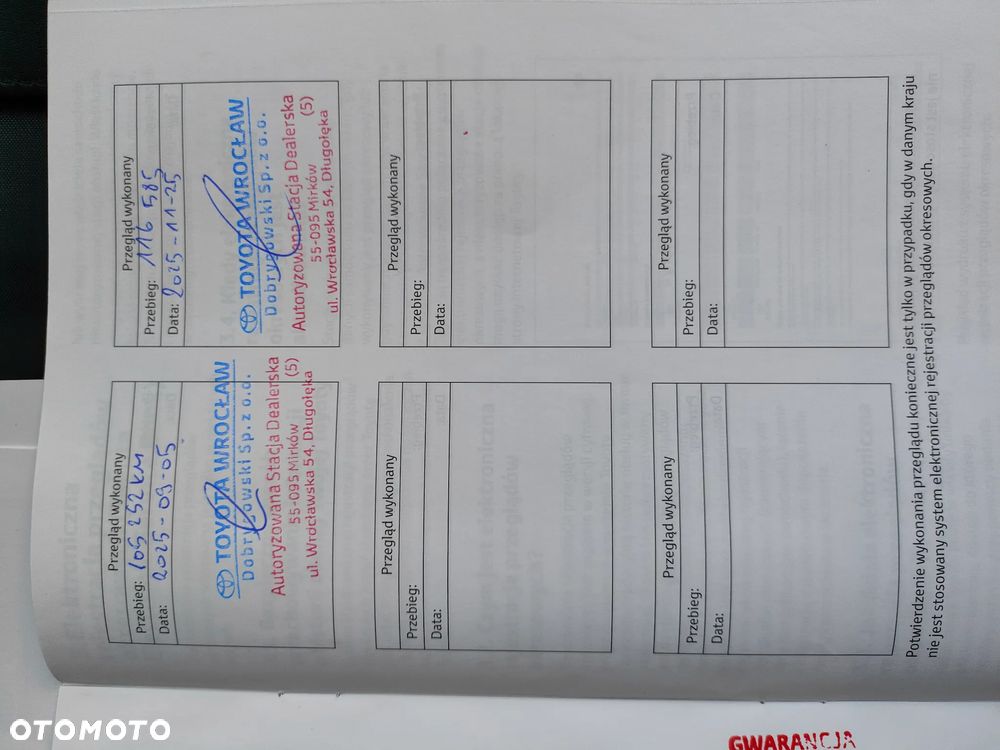 Przegląd wykonany
Przebieg: 105 252 KM
Data: 2025-09-05
TOYOTA WROCŁAW
Dobrygowski Sp. z o.o.
Autoryzowana Stacja Dealerska
55-095 Mirków (5)
ul. Wrocławska 54, Długołęka
Przegląd wykonany
Przebieg: 116 585
Data: 2025-11-25
TOYOTA WROCŁAW
Dobrygowski Sp. z o.o.
Autoryzowana Stacja Dealerska
55-095 Mirków (5)
ul. Wrocławska 54, Długołęka
Przegląd wykonany
Przebieg:
Data:
Przegląd wykonany
Przebieg:
Data:
Przegląd wykonany
Przebieg:
Data:
Przegląd wykonany
Przebieg:
Data:
Potwierdzenie wykonania przeglądu konieczne jest tylko w przypadku, gdy w danym kraju
nie jest stosowany system elektronicznej rejestracji przeglądów okresowych.
GWARANCJA
OTOMOTO